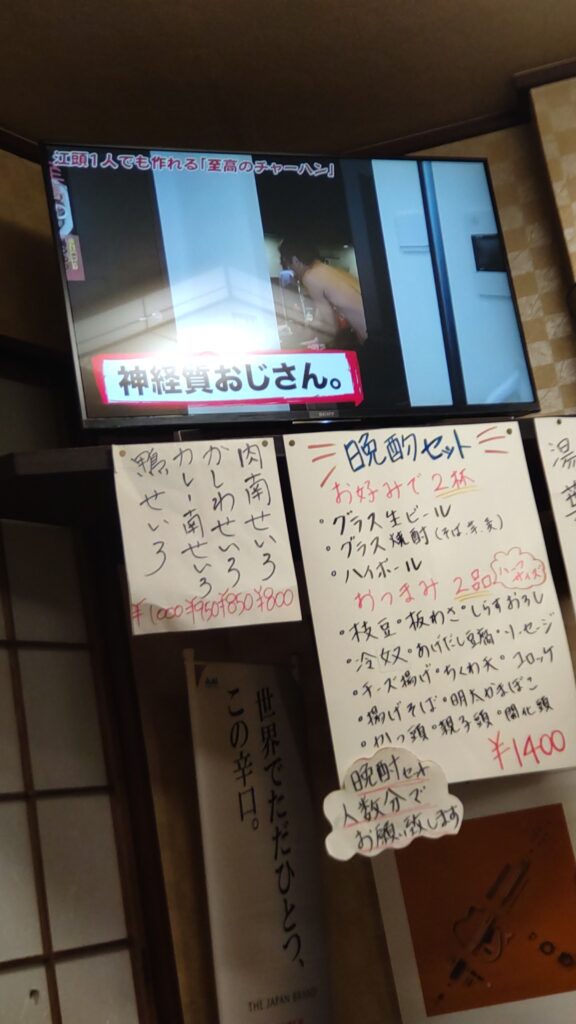 江頭1人でも作れる「至高のチャーハン」
神経質おじさん。
SONY
肉南せいろ
かしわせいろ
カレー南せいろ
鴨せいろ
¥1000 ¥950 ¥850 ¥800
晩酌セット
お好みで 2杯
・グラス生ビール
・グラス焼酎(そば、芋、麦)
・ハイボール
おつまみ 2品
ハーフサイズ
・枝豆・板わさ・しらすおろし
・冷奴・あげだし豆腐・ソーセージ
・チーズ揚げ・ちくわ天・コロッケ
・揚げそば・明太かまぼこ
・かつ頭・親子頭・開化頭
¥1400
晩酌セット
人数分で
お願い致します
湯
華
世界でただひとつ、
この辛口。
THE JAPAN BRAND